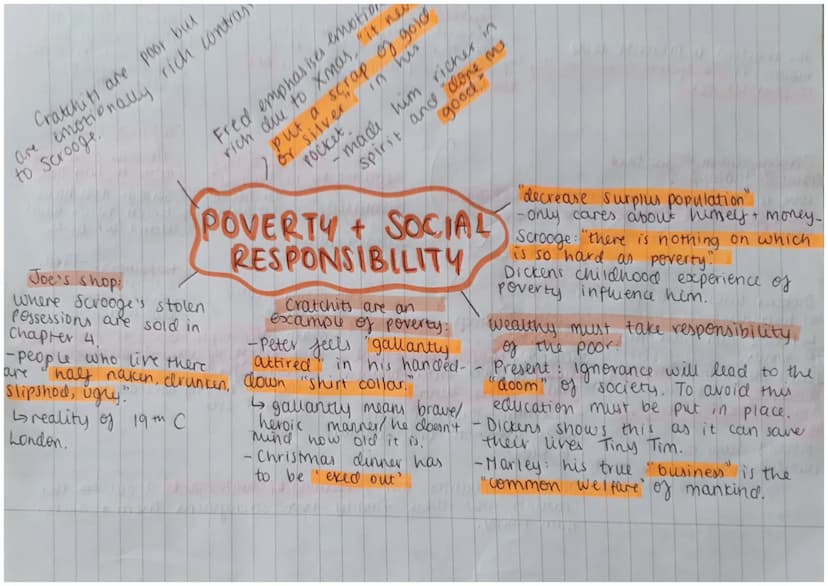 Cratchits are poor but
are emotionally rich contrast
to Scrooge.
Fred emphasises emotion
rich due to Xmas "it
put a scrap of gold
or silver" in his
pocket.
- made him richer in
spirit and "done me
good."
POVERTY + SOCIAL
RESPONSIBILITY
"decrease surplus population"
- only cares about himself + money
Scrooge: "there is nothing on which
is so hard as poverty."
Dickens childhood experience of
poverty influence him.
Joe's shop:
where Scrooge's stolen
possessions are sold in
Chapter 4.
- people who live there
are "half naken, drunken,
slipshod, ugly."
↳ reality of 19th C
London.
Cratchits are an
example of poverty:
- Peter feels "gallantly
attired" in his handed-
down "shirt collar."
↳ gallantly means brave/
heroic manner/he doesn't
mind how old it is.
- Christmas dinner has
to be "eked out"
Wealthy must take responsibility
of the poor:
- Present: ignorance will lead to the
"doom" of society. To avoid this
education must be put in place.
- Dickens shows this as it can save
their lives Tiny Tim.
- Marley: his true "business" is the
"common welfare" of mankind.